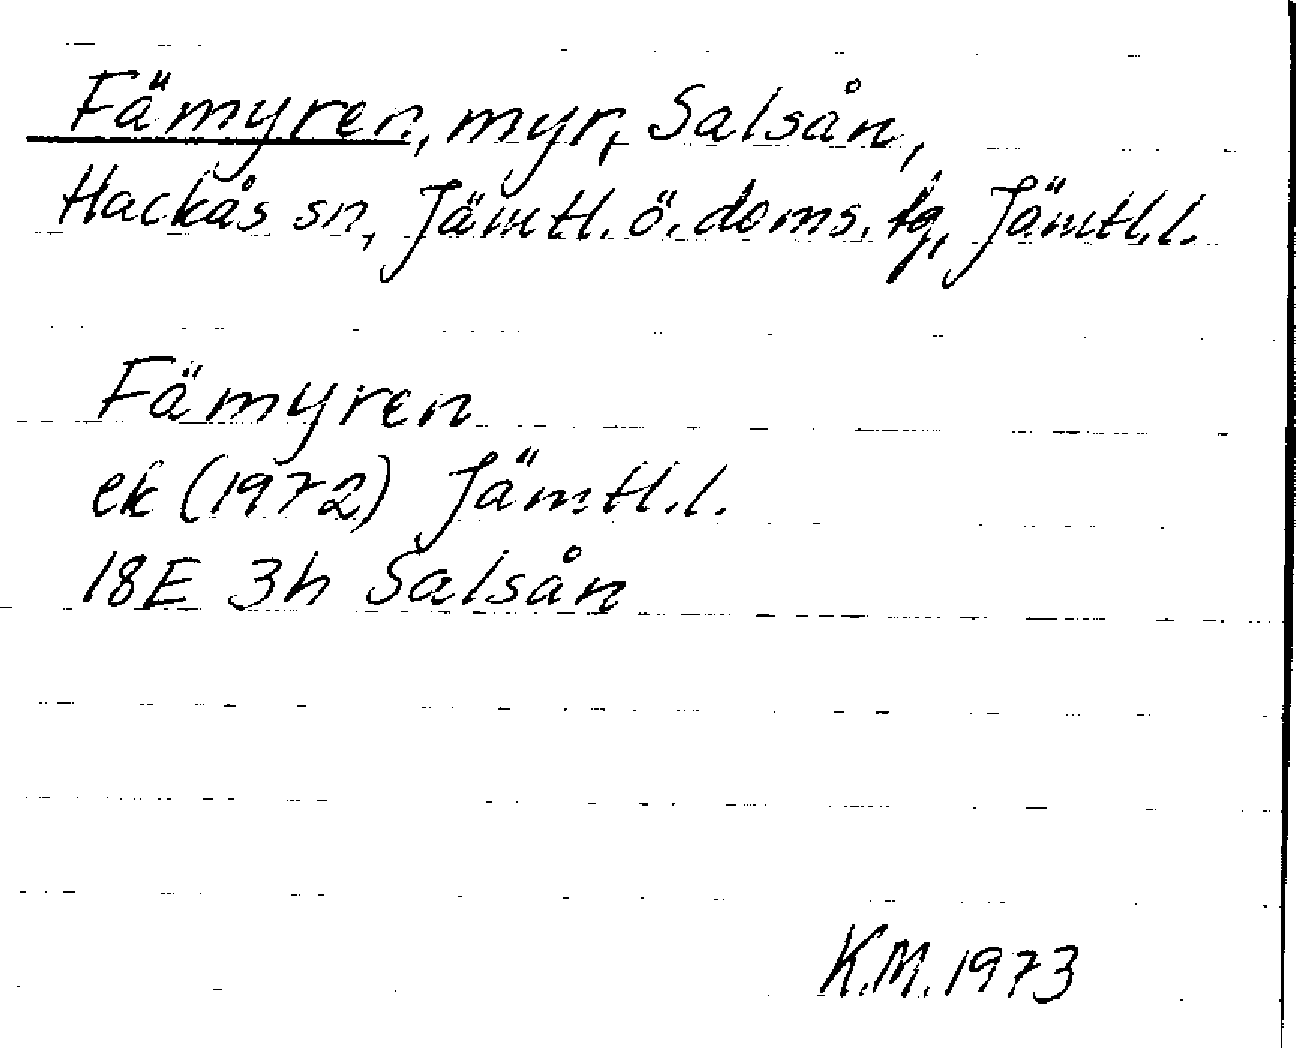 Fämyren, myr, Salsån,
Hackås sn, Jämtl. ö. doms. tg, Jämtl.l.
Fämyren
ek (1972) Jämtl.l.
18E 3h Salsån
K.M. 1973